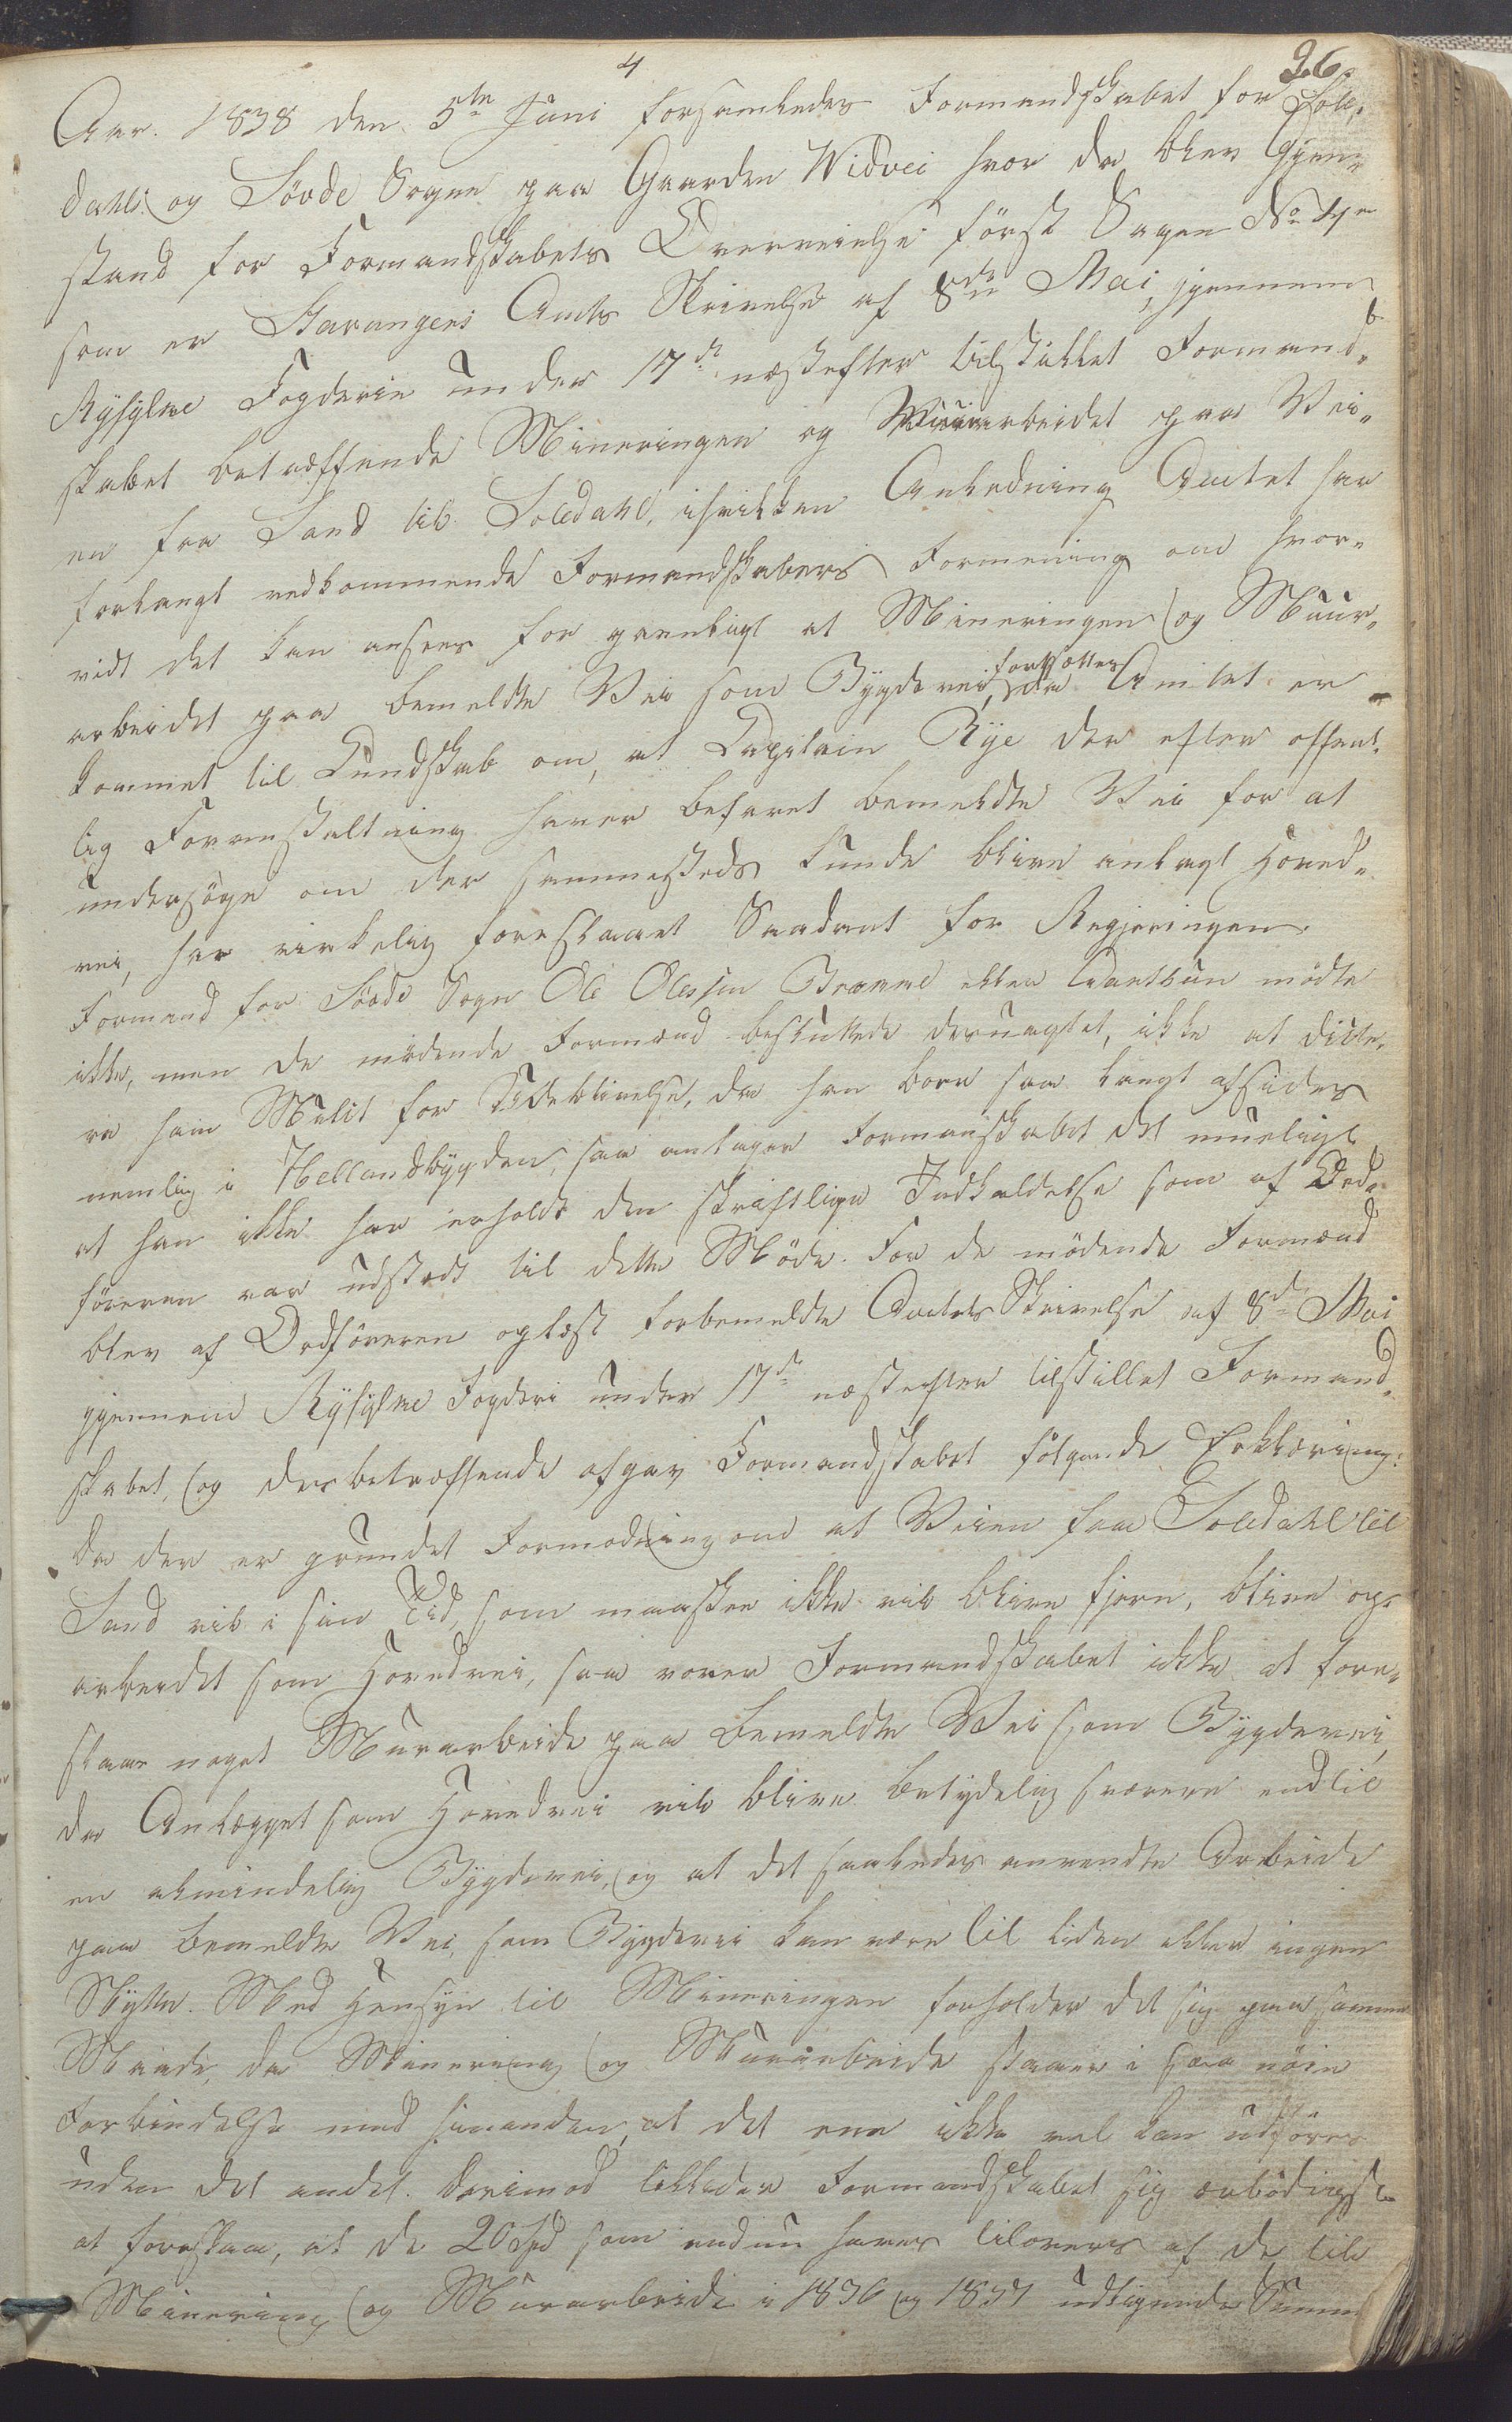 4
26.
Aar. 1838 den 5te Juni forsamledes Formandskabet for Sole„
dahls og Søvde Sogne paa Gaarden Widvei hvor da blev Gjen„
stand for Formandskabets Overveielse först Sagen No 4
som er Stavangers Amts Skrivelse af 8de Mai, gjennem
Ryfylke Fogderie under 17de næstefter tilstillet Formand„
skabet betræffende Mineringen og Muurarbeidet paa Vei„
en fra Sand til Soledahl, ihvilken Anledning Amtet har
forlangt vedkommende Formandskabers Formening om hvor„
vidt det kan ansees for gavnligt at Mineringen og Muur„
arbeidet paa bemeldte Vei som Bygdevei, fortsættes da Amtet er
kommet til Kundskab om, at Capitain Rye der efter offent„
lig Foranstaltning haver befaret bemeldte Vei for at
undersöge om der sammesteds kunde blive anlagt Hoved„
vei, har virkelig foreslaaet Saadant for Regjeringen.
Formand for Søvde Sogn Ole Olessen Bramne eller mödte
ikke, men de mödende Formænd besluttede desuagtet, ikke at dicte„
re ham Mulct for Udeblivelse, da han boer saa langt afsides
nemlig i Hellandsbygden, saa antager Formandskabet det mueligt
at han ikke har erholdt den skriftlige Indkaldelse som af Ord„
föreren var udstædt til dette Möde. For de mödende Formænd
blev af Ordföreren oplæst forbemeldte Amtets Skrivelse af 8de Mai
gjennem Ryfylke Fogderi under 17de næstefter tilstillet Formand„
skabet, og desbetræffende afgav Formandskabet fölgende Erklæring:
Da der er grundet Formodning om at Veien fra Soledahl til
Sand vil i sin Tid, som maaskee ikke vil blive fjern, blive op„
arbeidet som Hovedvei, saa vover Formandskabet ikke at fore„
slaae noget Murarbeide paa bemeldte Vei som Bygdevei,
da Anlægget som Hovedvei vil blive betydelig sværere end til
en almindelig Bygdevei, og at det saaledes anvendte Arbeide
paa bemeldte Vei, som Bygdevei kan være til liden eller ingen
Nytte. Med Hensyn til Mineringen forholder det sig paa samme
Maade, da Minering og Murarbeide staaer i saa nöie
Forbindelse med hinanden, at det ene ikke vel kan udföres
uden det andet. Derimod tillader Formandskabet sig ærbödigst
at foreslaae, at de 20 Spd som endnu haves tilovers af de til
Minering og Murarbeide i 1836 og 1837 udlignede Summer